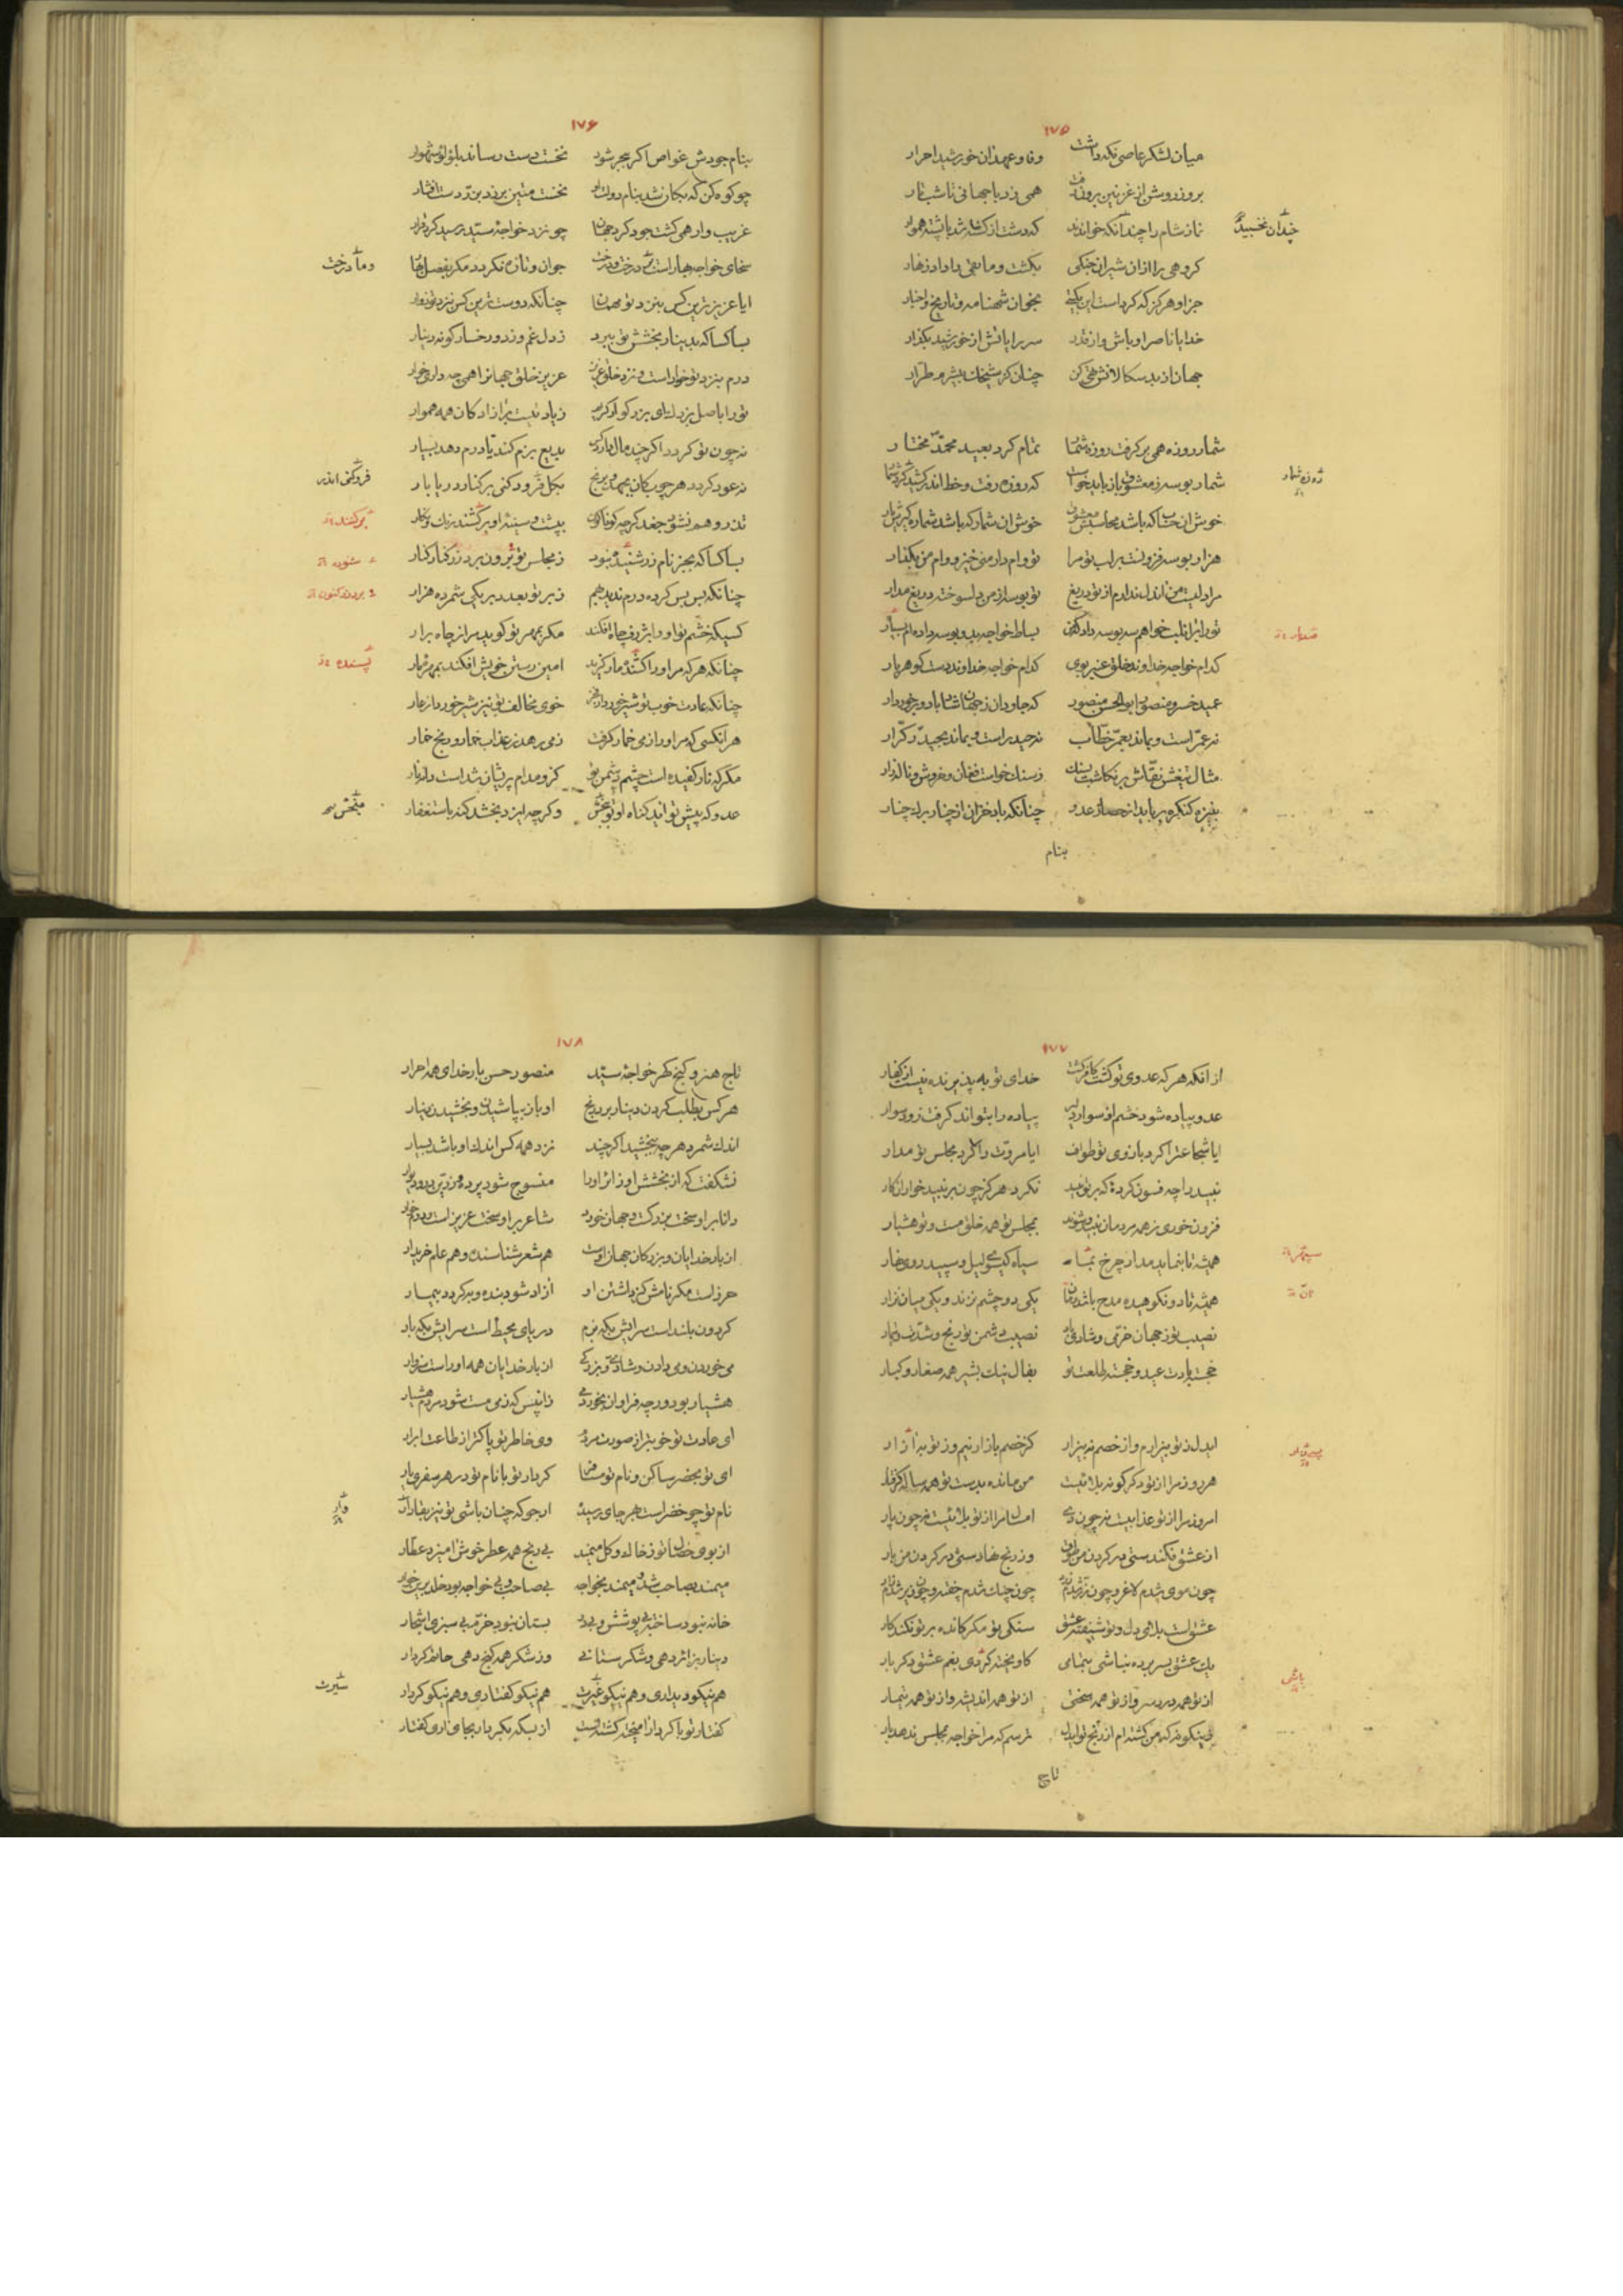 ۱۷۵
میان لشکر عاصی نکه داشت وفا و عهد آن خورشید احرار
بروز روشن از غزنین برون رفت همی زد با جهانی تا شب تار
نماز شام را چندانکه خوانند که دشت از کشته شد با پشته هموار
چندان نخسبید
کروهی را از آن شیران جنکی بکشت و مابقی را داد زنهار
جز او هرکز که کرد است این بکیتی بخوان شهنامه و تاریخ و اخبار
خدایا ناصر او باش و از قدر سر رایاتش از خورشید بکذار
جهان از بدسکالانش تهی کن
شمار روزه همی برکرفت روزه شمار تمام کرد بعید محمد مختار
شمار بوسه ز معشوق باز باید خواست که روزه رفت و خط اندر کشید کرد شمار
روزه شمار
خوش آن حساب که باشد محاسبش معشوق خوش آن شمار که باشد شماره کیرش یار
هزار بوسه فزونست بر لب تو مرا تو وام دار منی خیز و وام من بکذار
مرا دلیست من آن دل ندارم از تو دریغ تو بوسه از من دلسوخته دریغ مدار
تو را برابر خواهم سه بوسه داد کنون بساط خواجه بدو بوسه داده ام بسیار
کدام خواجه خداوند خلق عنبر بوی کدام خواجه خداوند دست کوهر بار
عمید خسرو منصور ابوالحسن منصور که جاودان ز جهان شاد باد و برخوردار
نه عمر است و بماند بعمر خطاب نه حیدر است و بماند بحیدر کرار
مثال تیغش نقاش بر نکاشت بسنک ز سنک خواست فغان و خروش و ناله زار
بنیزه کنکره برباید از حصار عدو چنانکه باد خزان از چنار برک چنار
بنام
۱۷۶
بنام جودش غواص اکر ببحر شود نخست دست رساند بلؤلؤ شهوار
چو کوه کن که بکان شد بنام دولت او نخست متین برزد بزر دست افشار
غریب وار همی کشت جود کرد جهان چو نزد خواجه سید رسید کرد قرار
سخای خواجه بهار است و ما درخت جوان و تازه نکردد مکر بفصل بهار
و ما درخت
ایا عزیزترین کس بنزد تو مهمان چنانکه دوست ترین کس بنزد تو زوار
بسا کسا که بدینار بخشش تو ببرد ز دل غم و ز دو رخسار کونه دینار
درم بنزد تو خوار است و نزد خلق عزیز عزیز خلق جهانرا همی چه داری خوار
تو را باصل بزرک ای بزرکوار کریم زیادتست بر آزادکان همه هموار
نه چون تو کردد اکر چند مال دارد کس بدیع بزم کند یا درم دهد بسیار
نه عود کردد هر چوب کان بجهد و برنج بکل فرود کنی بر کنار دریابار
فروکنی اندر
تذرو هم نشود جغد کرچه کوناکون به پشت و سینه او برکشند رنک و نکار
برکنند
بسا کسا که بجز نام زر شنیده نبود ز مجلس تو برون برد زر کنار کنار
شنوده
چنانکه بس بس کرده درم ندید بهم زبر تو بعدد بر یکی شمرده هزار
کسیکه خشم تو او را بژرف چاه افکند مکر بمهر تو کوید مرا ز چاه برار
چنانکه هرکه مر او را کشنده مار کزید امین رستن خویش افکند بمهره مار
چنانکه عادت خوب تو شیر خورد ز فخر خوی مخالف تو نیز شیر خورد از عار
هر آنکسی که مر او را ز می خمار کرفت ز می رهد ز عذاب خمار و رنج خمار
مکر که نار کفیده است چشم دشمن تو کزو مدام پریشان شد است دانه نار
عدو که پیش تو آید کناه او تو ببخش وکرچه ایزد بخشد کنه باستغفار
۱۷۷
از آنکه هرکه عدوی تو کشت کافر کشت خدای توبه پذیرنده نیست از کفار
عدو پیاده شود خشم او سوار دلیر پیاده را بتواند کرفت زود سوار
ایا شجاعترا کرد بازوی تو طواف ایا مروت را کرد مجلس تو مدار
نبید را چه فسون کرده که بر تو نبید نکرد هرکز چون بر نبید خواران کار
فزون خوری ز همه مردمان نبید و شوند بمجلس تو همه خلق مست و تو هشیار
همیشه تا بنماید مدار چرخ بما سیاه کیسوی لیل و سپید روی نهار
سپهر
همیشه تا دو نکوهیده مدح یکی دو چشم نژند و یکی میان نزار
نصیب تو ز جهان خرمی و شادی باد نصیب دشمن تو رنج و شدت و تیمار
خجسته بادت عید و خجسته طلعت تو بفال نیک بشیر همه صغار و کبار
ایدل ز تو بیزارم و از خصم نه بیزار کز خصم بازار نیم وز تو به آزار
هر روز مرا از تو دکرکونه بلائیست من مانده بدست تو همه ساله کرفتار
امروز مرا از تو عذابیست نه چون دی امسال مرا از تو بلائیست نه چون پار
از عشق فکندستی در کردن من طوق وز رنج نهادستی در کردن من بار
چون موی شدم لاغر و چون زر شدم زرد چون چنک شدم چفته و چون زیر شدم زار
عشق است بلای دل و تو شیفته عشق سنکی تو مکر کانده بر تو نکند کار
یک عشق بسر برده نباشی بتمامی کاویخته کردی بغم عشق دکر بار
باشی
از تو همه درد سر و از تو همه سختی از تو همه اندیشه و از تو همه تیمار
زینکونه که من کشته ام از رنج تو ایدل ترسم که مرا خواجه بمجلس ندهد بار
تاج
۱۷۸
تاج هنر و کنج کهر خواجه سید منصور حسن بار خدای همه احرار
هرکس بطلب کردن دینار برد رنج او باز بپاشیدن و بخشیدن دینار
اندک شمرد هرچه ببخشید اکرچند نزد همه کس اندک او باشد بسیار
نشکفت که از بخشش او زائر او را منسوج شود پرده و زرین در و دیوار
دانا بر او سخت بزرکست و جهان خورد شاعر بر او سخت عزیز است و درم خوار
از بار خدایان و بزرکان جهان اوست هم شعر شناسنده و هم علم خریدار
حر زاست مکر نامش کز داشتن او آزاد شود بنده و به کردد بیمار
کردون بلند است سرایش بکه بزم دریای محیط است سرایش بکه بار
می خوردن و می دادن و شادی و بزرکی از بار خدایان همه او راست سزاوار
هشیار بود ورچه فراوان بخورد می زانپس که ز می مست شود مردم هشیار
ای عادت تو خوبتر از صورت مردم وی خاطر تو پاکتر از طاعت ابرار
ای تو بحضر ساکن و نام تو مسافر کردار تو با نام تو در هر سفری یار
نام تو چو خضر است بهر جای رسیده ارجو که چنان باشی تو نیز
از بوی خصال تو ز خاک و کل میمند بی رنج همه عطر خوش آمیزد عطار
میمند بصاحب شد و میمند بخواجه بی صاحب و بی خواجه بود خلد برین خوار
خانه نبود ساخته بی پوشش و بی در بستان نبود خرم بی سبزی اشجار
دینار بزائر دهی و شکر ستانی وز شکر همه کنج نهی
هم نیکو دیداری و هم نیکو عشرت هم نیکو کفتاری و هم نیکو کردار
سیرت
کفتار تو با کردار آمیخته کشته است از بسکه بکردار بجای آری کفتار